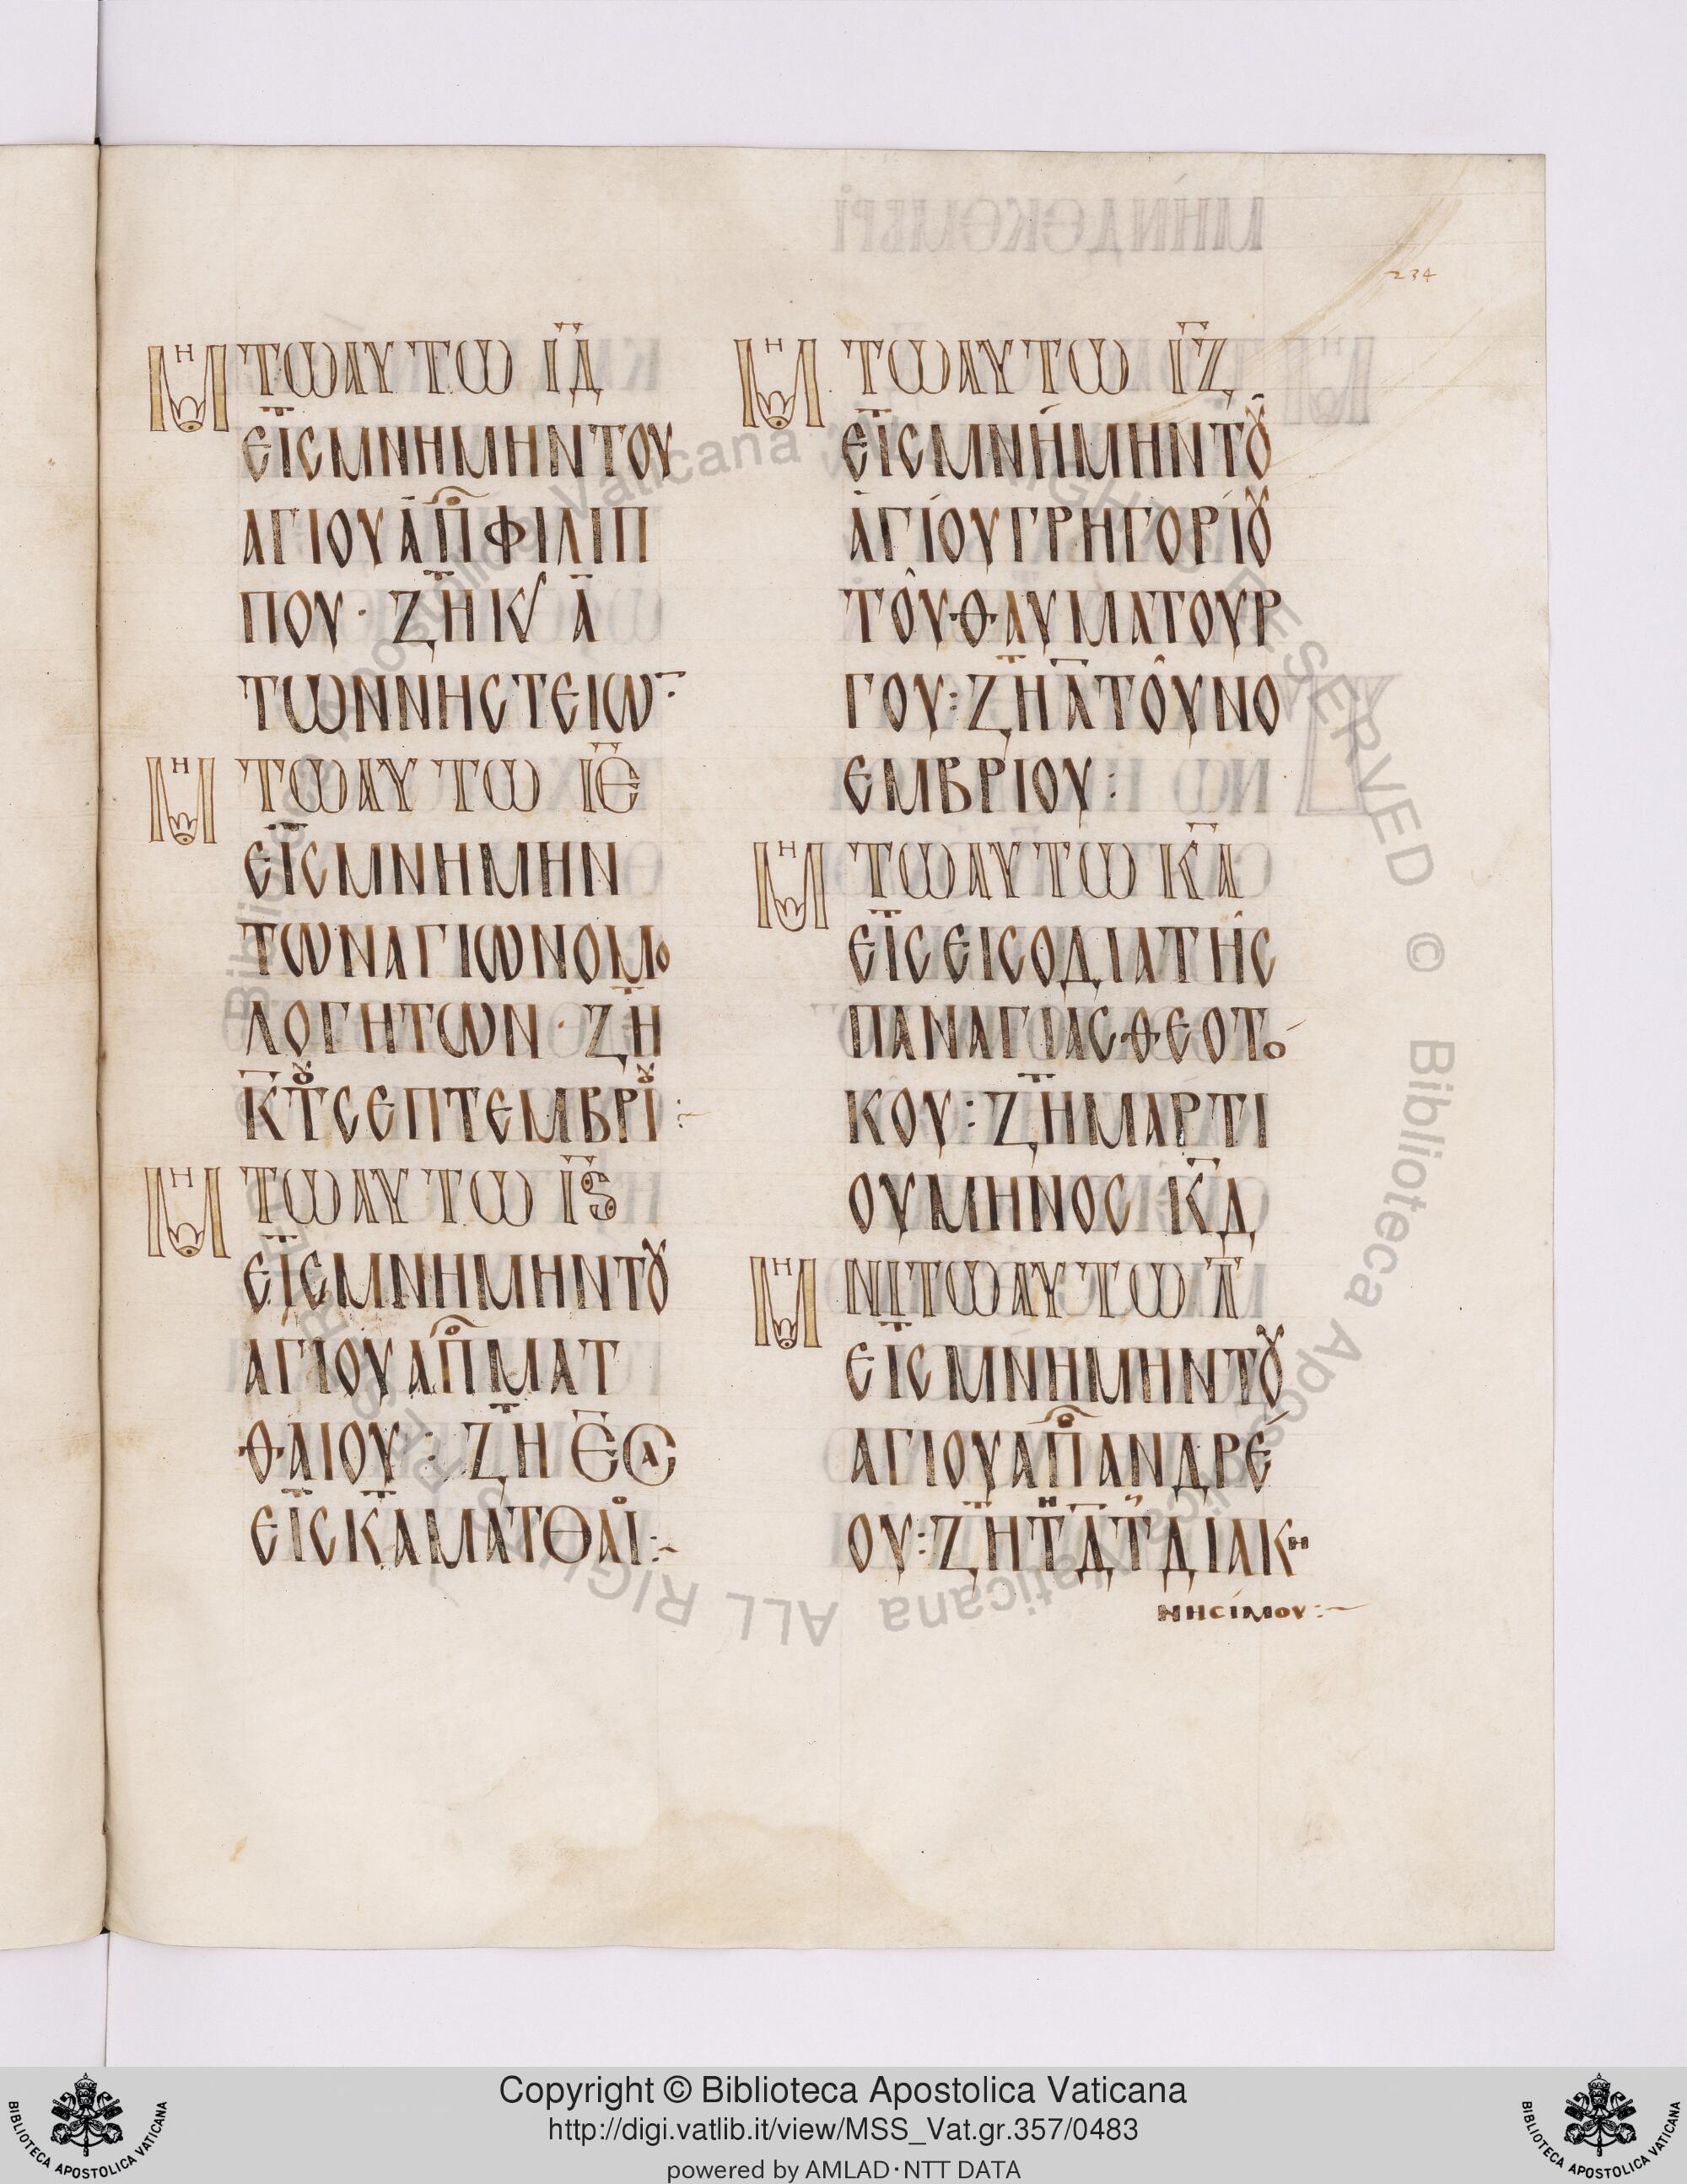 234
ΜΗ ΤΩ ΑΥΤΩ ΙΔ
ΕΙΣ ΜΝΗΜΗΝ ΤΟΥ
ΑΓΙΟΥ ΑΠΟ ΦΙΛΙΠ
ΠΟΥ · ΖΗΤ Κ Α
ΤΩΝ ΝΗΣΤΕΙΩ
ΜΗ ΤΩ ΑΥΤΩ ΙΕ
ΕΙΣ ΜΝΗΜΗΝ
ΤΩΝ ΑΓΙΩΝ ΟΜΟ
ΛΟΓΗΤΩΝ · ΖΗΤ
Κ ΤΟΥ ΣΕΠΤΕΜΒΡΙΟΥ :~
ΜΗ ΤΩ ΑΥΤΩ ΙϚ
ΕΙΣ ΜΝΗΜΗΝ ΤΟΥ
ΑΓΙΟΥ ΑΠΟ ΜΑΤ
ΘΑΙΟΥ : ΖΗΤ
ΕΙΣ Κ ΜΑΤΘΑΙΟ :~
ΜΗ ΤΩ ΑΥΤΩ ΙΖ
ΕΙΣ ΜΝΗΜΗΝ ΤΟΥ
ΑΓΙΟΥ ΓΡΗΓΟΡΙΟΥ
ΤΟΥ ΘΑΥΜΑΤΟΥΡ
ΓΟΥ : ΖΗΤ Α ΤΟΥ ΝΟ
ΕΜΒΡΙΟΥ :
ΜΗ ΤΩ ΑΥΤΩ ΚΑ
ΕΙΣ ΕΙΣΟΔΙΑ ΤΗΣ
ΠΑΝΑΓΙΑΣ ΘΕΟΤΟ
ΚΟΥ : ΖΗΤ ΜΑΡΤΙ
ΟΥ ΜΗΝΟΣ ΚΔ
ΜΗΝΙ ΤΩ ΑΥΤΩ Λ
ΕΙΣ ΜΝΗΜΗΝ ΤΟΥ
ΑΓΙΟΥ ΑΠΟ ΑΝΔΡΕ
ΟΥ : ΖΗΤ ΤΗ Δ Τ ΔΙΑΚΗ
ΝΗΣΙΜΟΥ :~
Copyright © Biblioteca Apostolica Vaticana
http://digi.vatlib.it/view/MSS_Vat.gr.357/0483
powered by AMLAD·NTT DATA
BIBLIOTECA APOSTOLICA VATICANA
BIBLIOTECA APOSTOLICA VATICANA